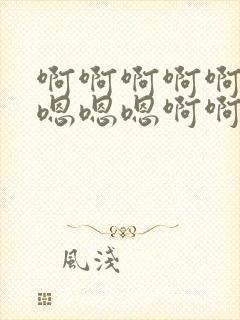 啊啊啊啊啊
嗯嗯嗯啊啊
風淺